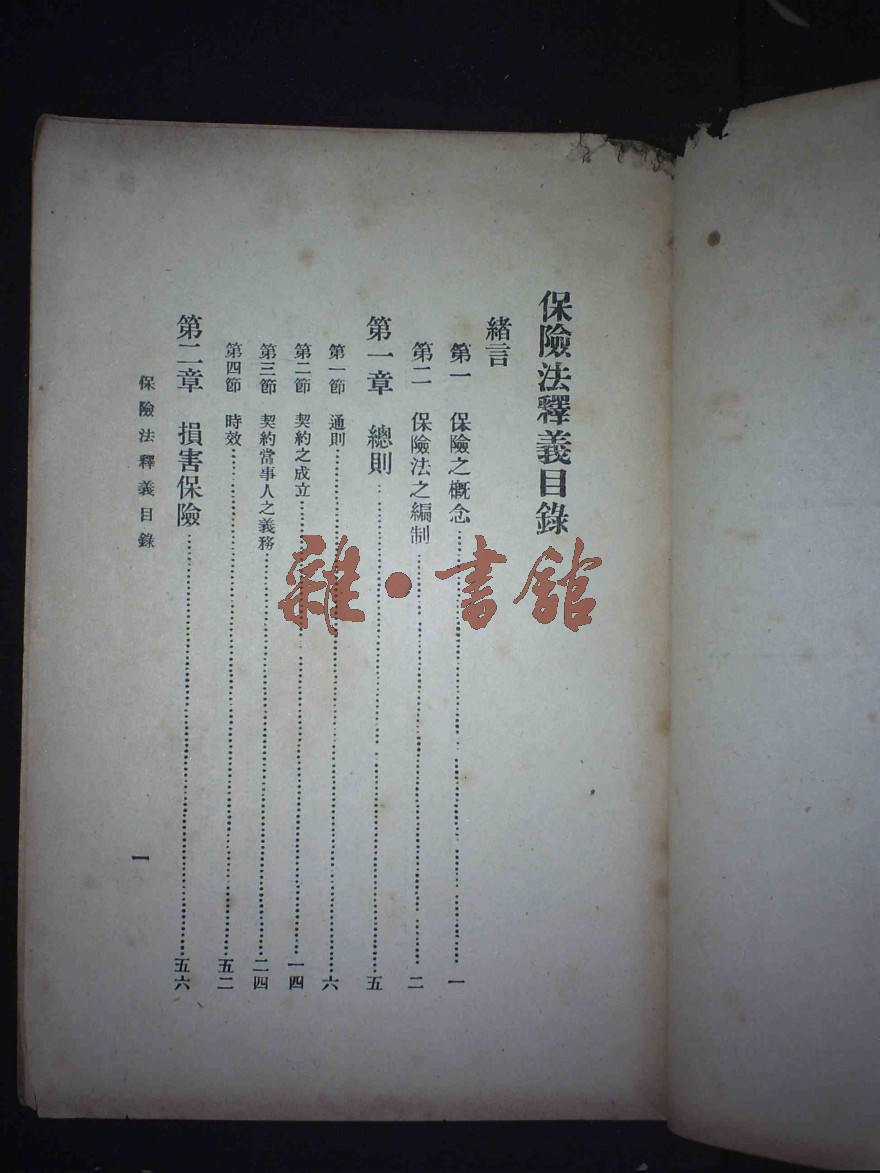 保險法釋義目錄
緒言
第一 保險之概念……一
第二 保險法之編制……二
第一章 總則……五
第一節 通則……六
第二節 契約之成立……一四
第三節 契約當事人之義務……二四
第四節 時效……五二
第二章 損害保險……五六
保險法釋義目錄
一
雜·書館